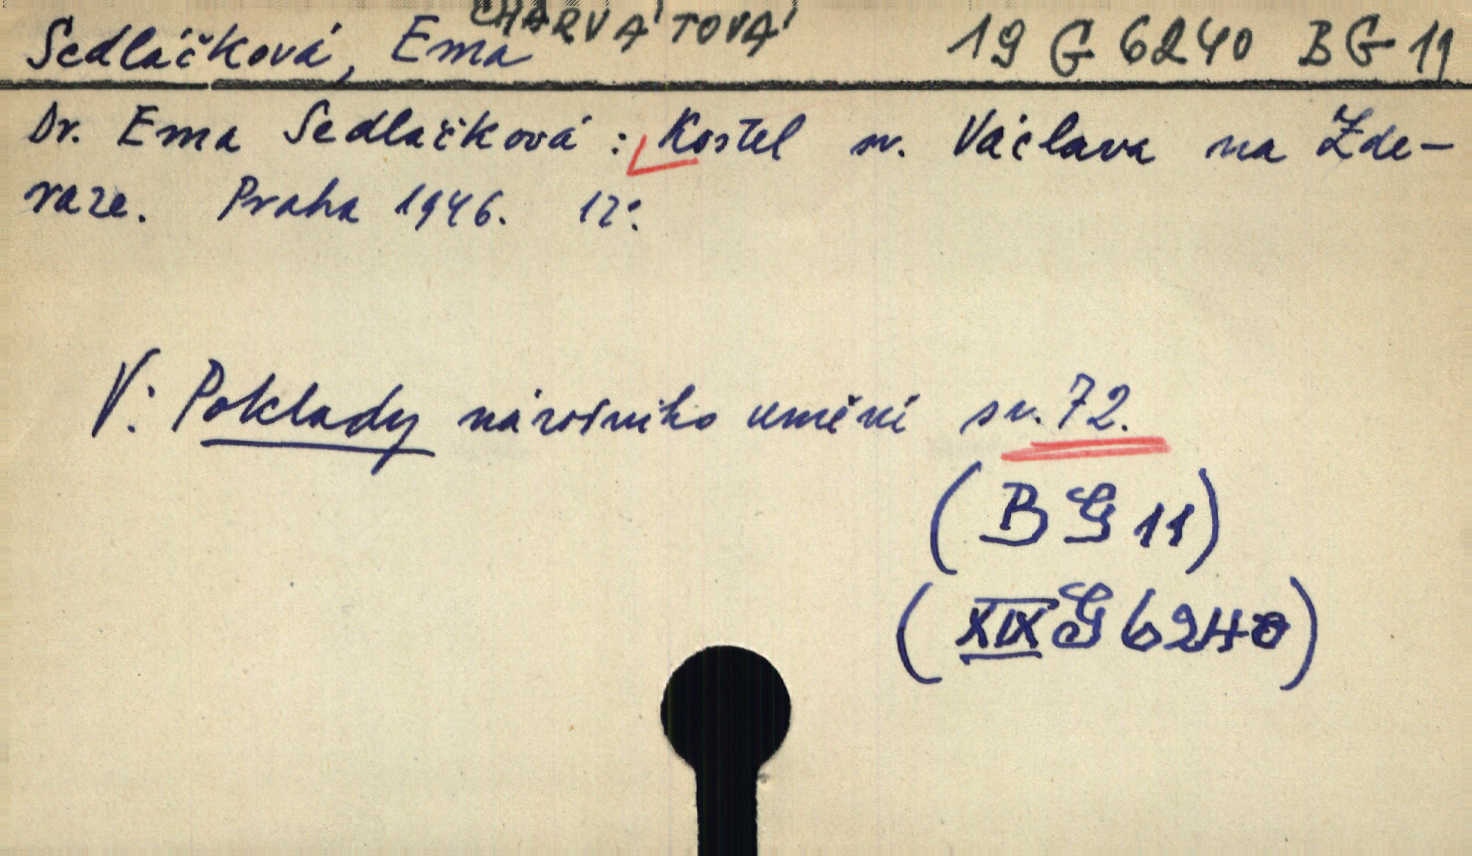 CHARVÁTOVÁ
Sedláčková, Ema 19 G 6240 BG 11
Dr. Ema Sedláčková: Kostel sv. Václava na Zde-
raze. Praha 1946. 12°.
V: Poklady národního umění sv. 72.
(BG 11)
(XIX G 6240)